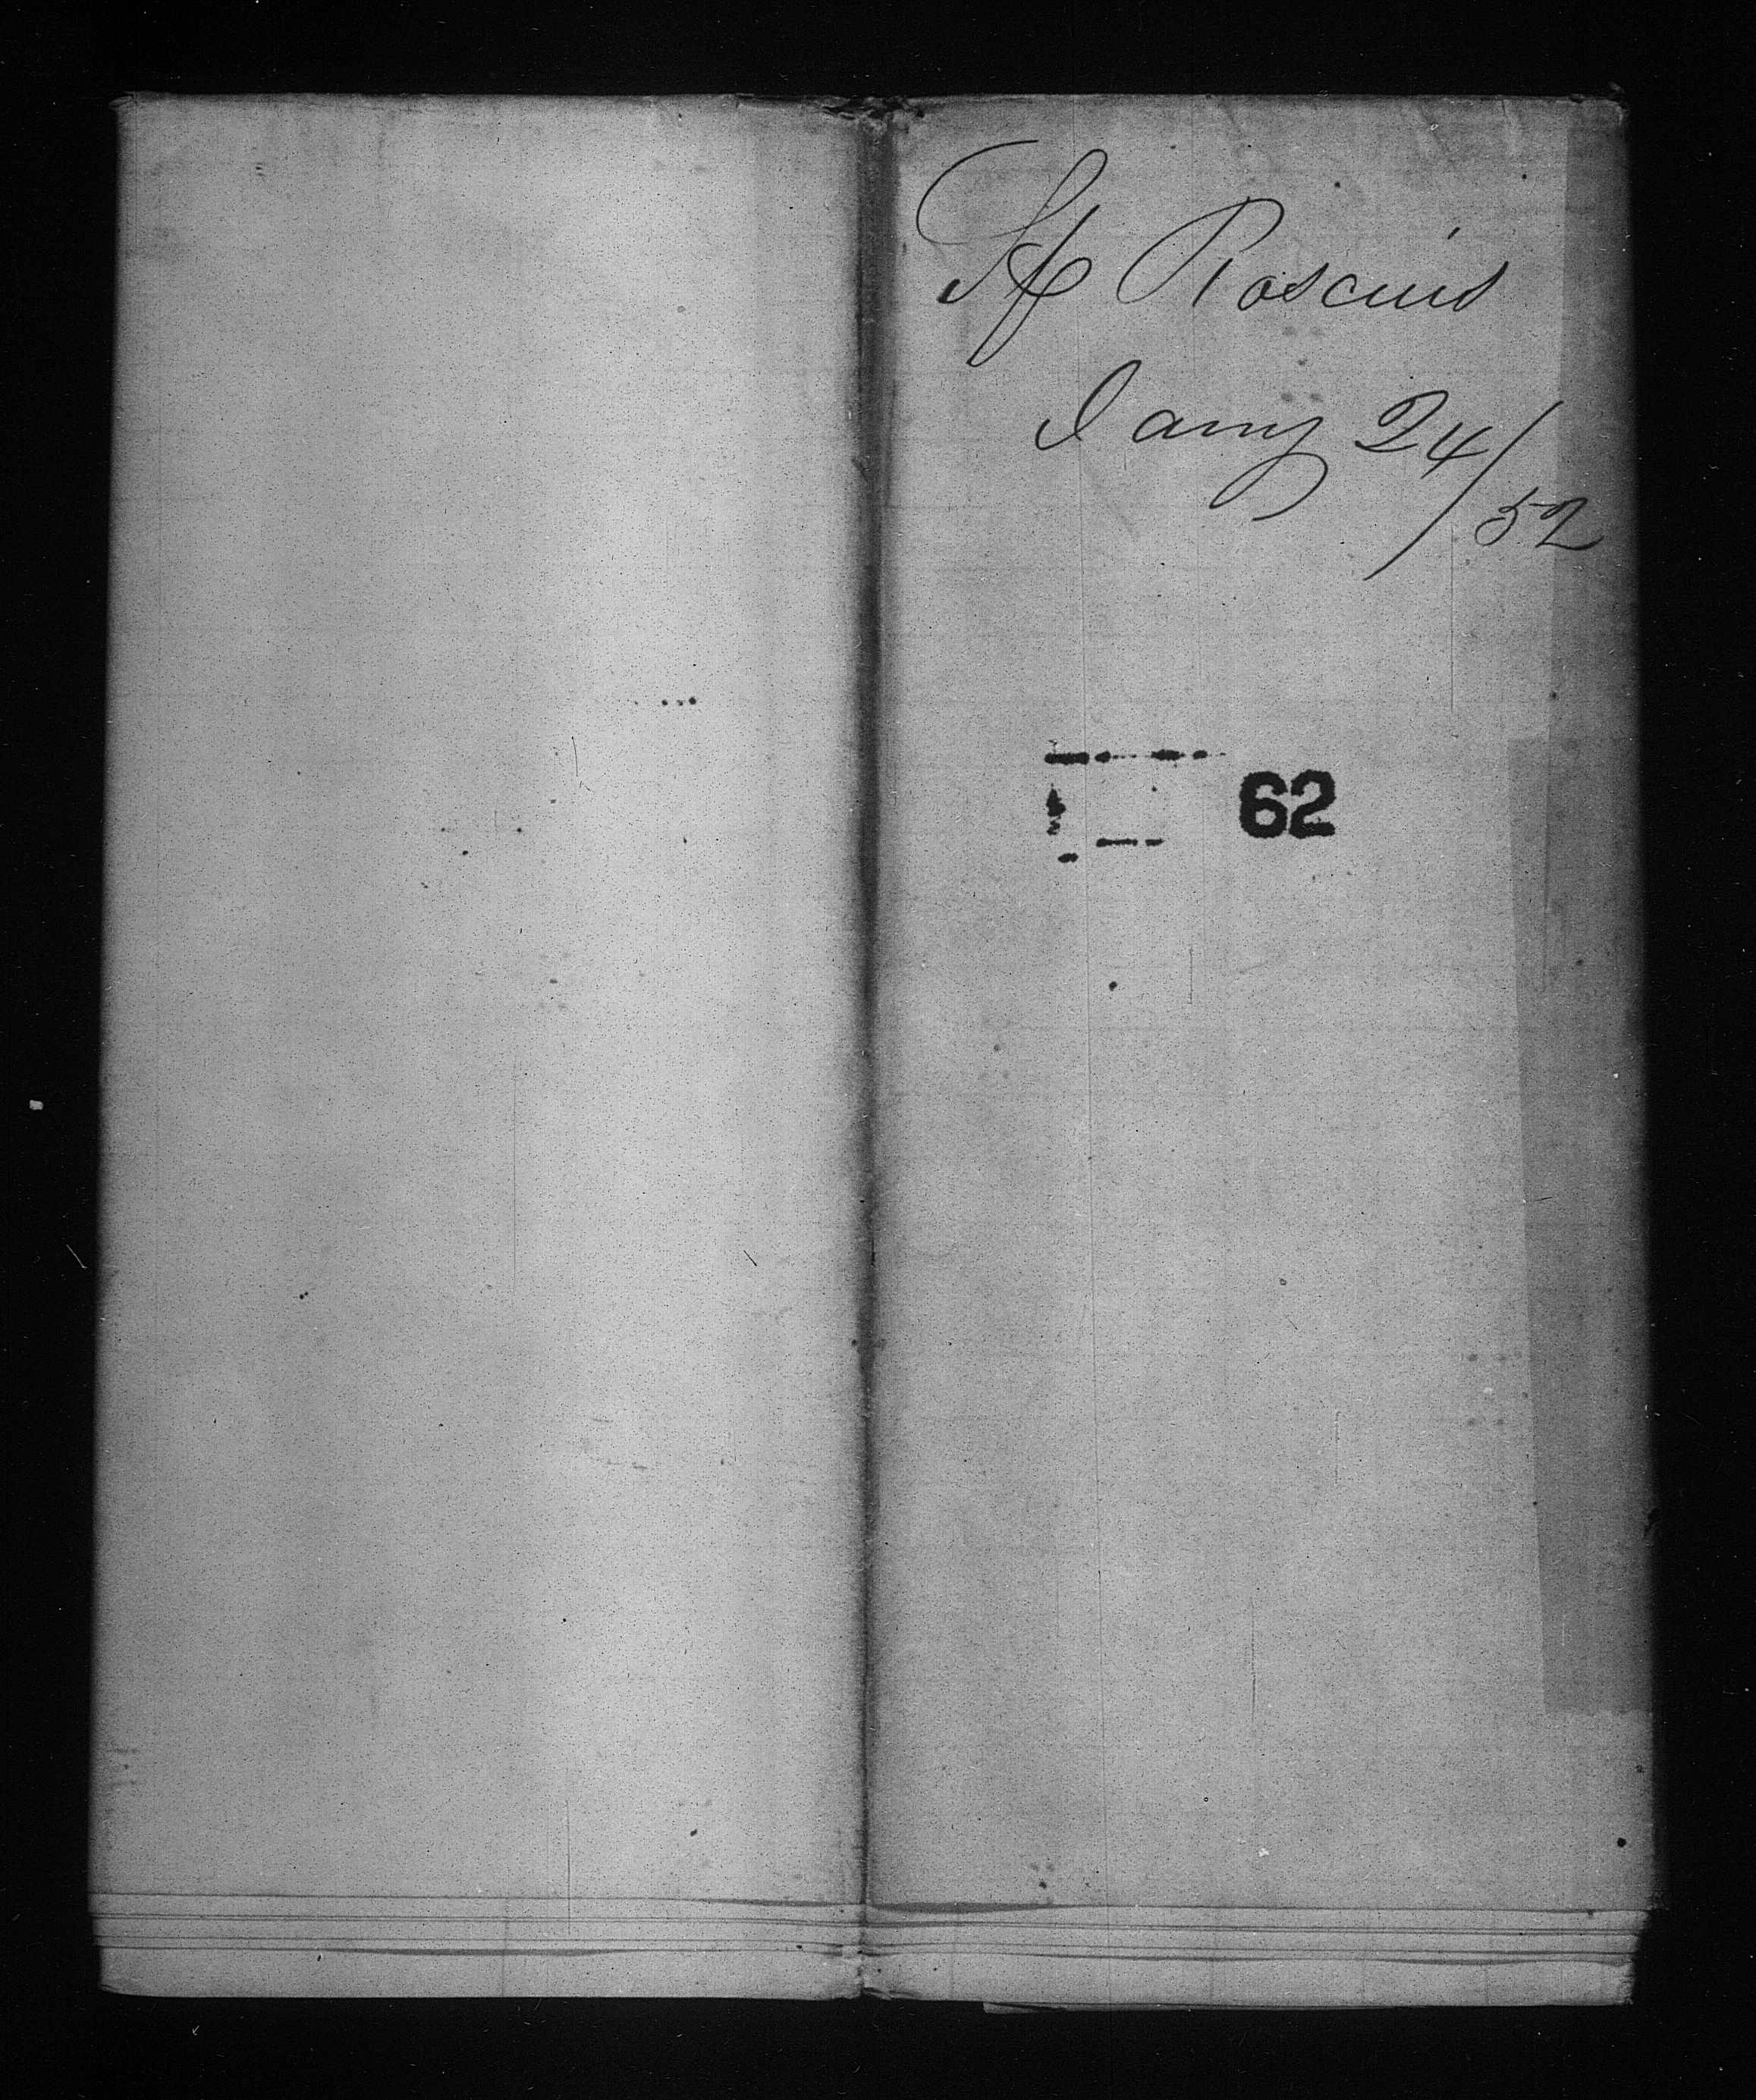 Sp Roscius
Jany 24/52
62